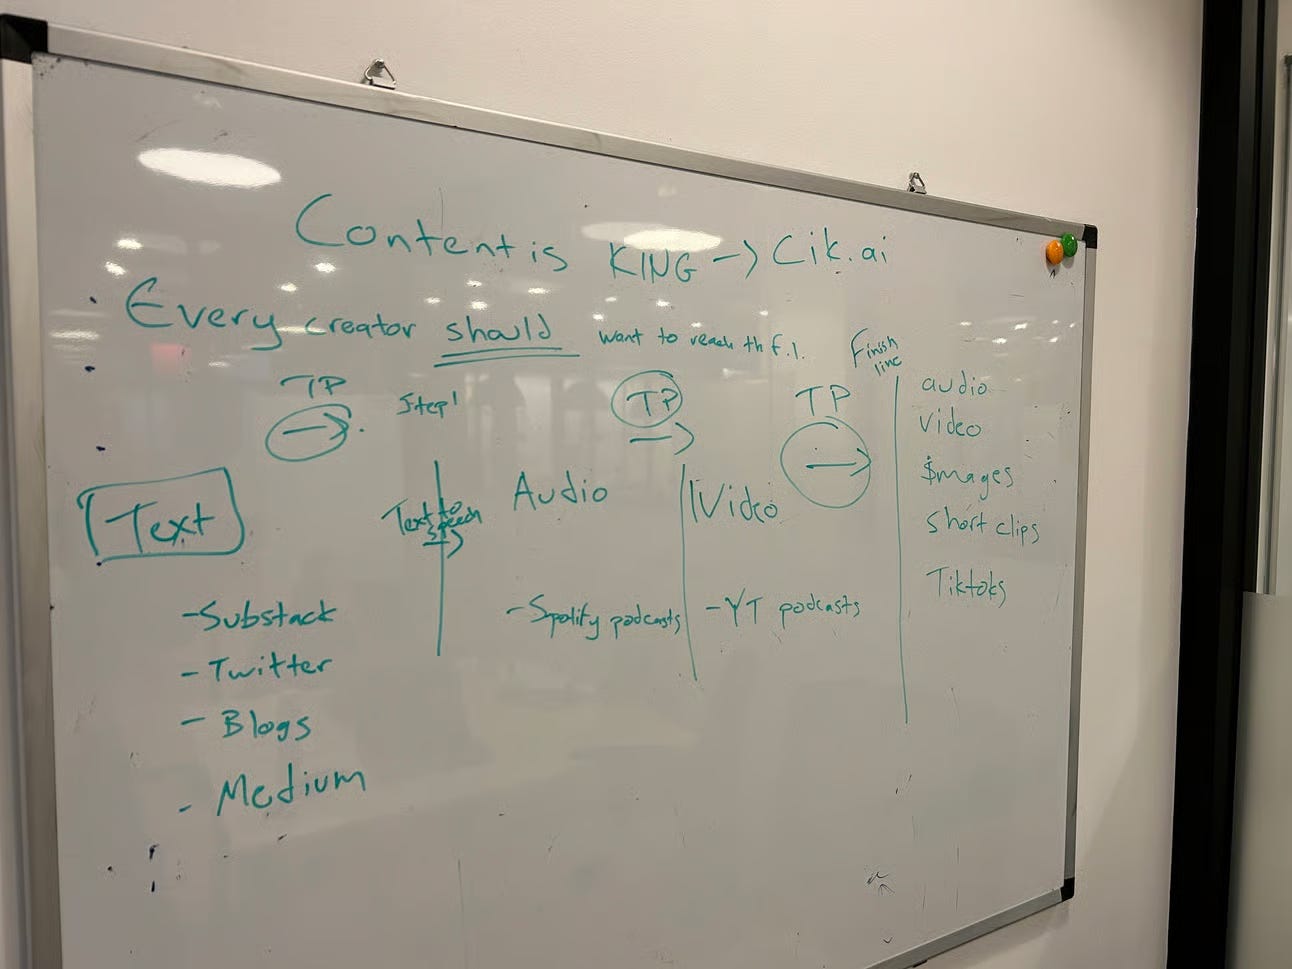 Content is KING -> Cik.ai
Every creator should want to reach th f.l.
Finish line
TP
Step 1
TP
TP
Text
Text to speech
Audio
Video
audio
video
Images
short clips
Tiktoks
- Substack
- Twitter
- Blogs
- Medium
- Spotify podcasts
- YT podcasts